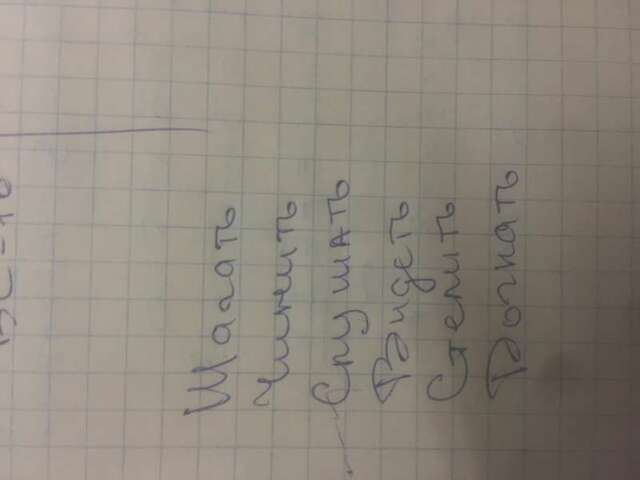 Шагать
Чинить
Слушать
Видеть
Стелить
Догнать